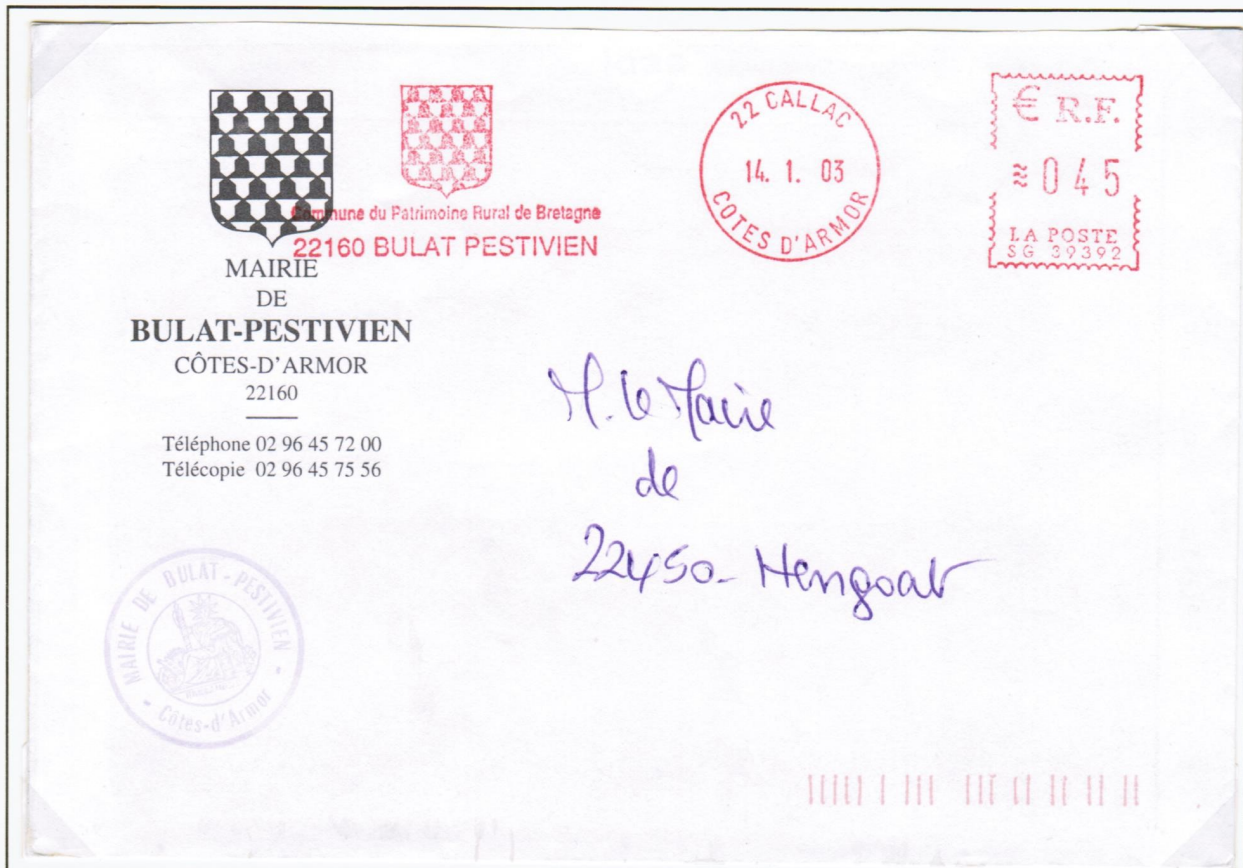 Commune du Patrimoine Rural de Bretagne
22160 BULAT PESTIVIEN
22 CALLAC
14. 1. 03
COTES D'ARMOR
€ R.F.
≋045
LA POSTE
SG 39392
MAIRIE
DE
BULAT-PESTIVIEN
CÔTES-D'ARMOR
22160
Téléphone 02 96 45 72 00
Télécopie 02 96 45 75 56
M. le Maire
de
22450- Hengoat
MAIRIE DE BULAT-PESTIVIEN
Côtes-d'Armor